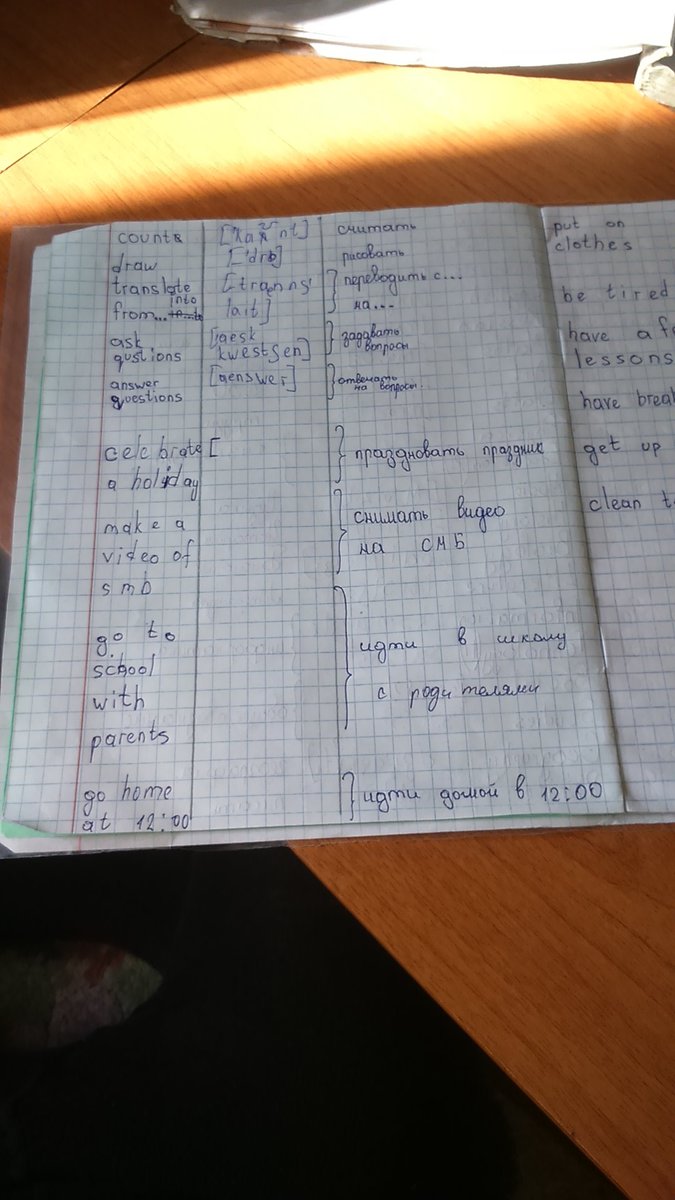 count [kaʊnt] считать
draw ['drɔ] рисовать
translate переводить с...
from... into на...
ask задавать
qustions kwestʃen] вопросы
answer [aenswer] отвечать
questions на вопросы.
celebrate [ праздновать праздник
a holiday
make a снимать видео
video of на СМБ
smb
go to идти в школу
school
with с родителями
parents
go home идти домой в 12:00
at 12:00
put on
clothes
be tired
have a
lessons
have
get up
clean